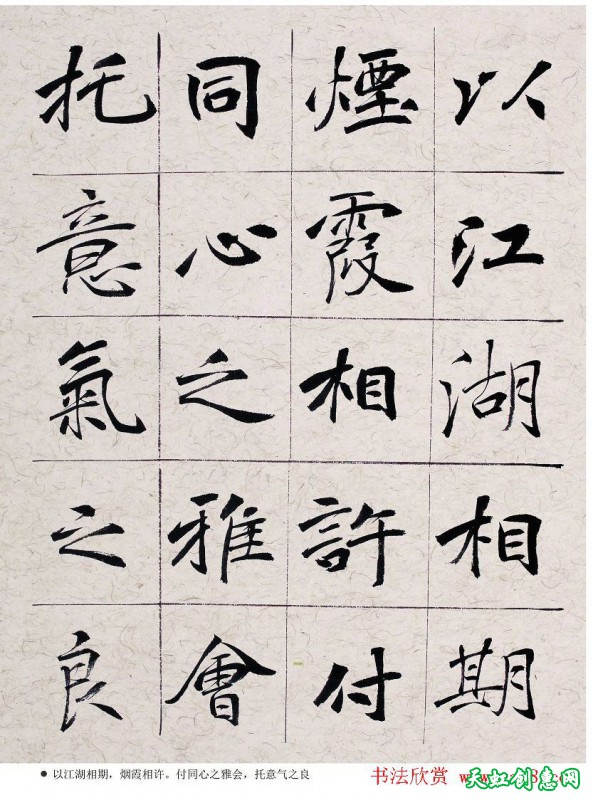 以江湖相期
煙霞相許付
同心之雅會
托意氣之良
● 以江湖相期，烟霞相许。付同心之雅会，托意气之良
书法欣赏
天虹创意网